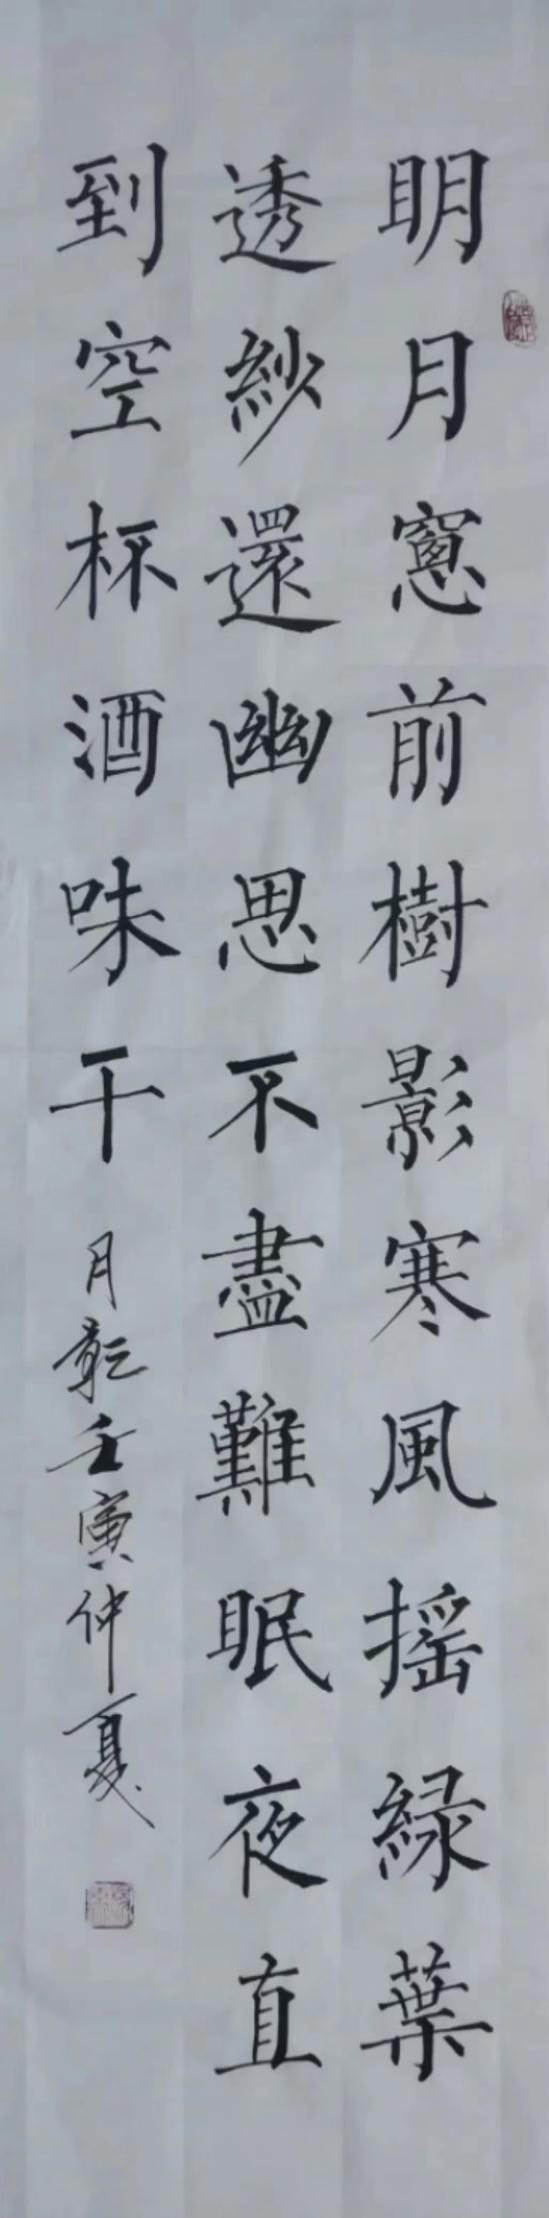 明月窻前樹影寒風摇緑葉
透紗還幽思不盡難眠夜直
到空杯酒味干
月乾壬寅仲夏